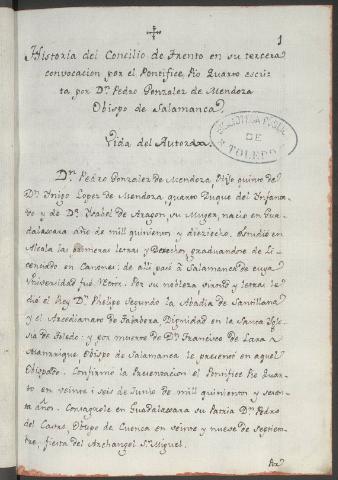 1
Historia del Concilio de Trento en su tercera
convocacion por el Pontifice Pio Quarto escri-
ta por Dn. Pedro Gonzalez de Mendoza
Obispo de Salamanca.
Vida del Autor
DE
TOLEDO
Dn. Pedro Gonzalez de Mendoza, Hijo quinto de
Dn. Yñigo Lopez de Mendoza, quarto Duque del Ynfanta-
do y de Da. Ysabel de Aragon, su Muger, nacio en Gua-
dalaxara año de mil quinientos y dieziocho. Estudió en
Alcala las primeras letras y Derechos, graduandose de Li-
cenciado en Canones: de alli pasó à Salamanca de cuya
Vniversidad fué Retor. Por su nobleza, virtud y letras le
dió el Rey Dn. Phelipe Segundo la Abadia de Santillana
y el Arcedianato de Talabera, Dignidad en la Santa Ygle-
sia de Toledo: y por muerte de Dn. Francisco de Lara
Manrrique, Obispo de Salamanca le presentó en aquel
Obispado. Confirmó la Presentacion el Pontifice Pio Quar-
to en veinte i seis de Junio de mil quinientos y sesen-
ta años. Consagrole en Guadalaxara su Patria Dn. Pedro
de Castro, Obispo de Cuenca en veinte y nueve de Septiem-
bre, fiesta del Archangel Sn. Miguel.
Por